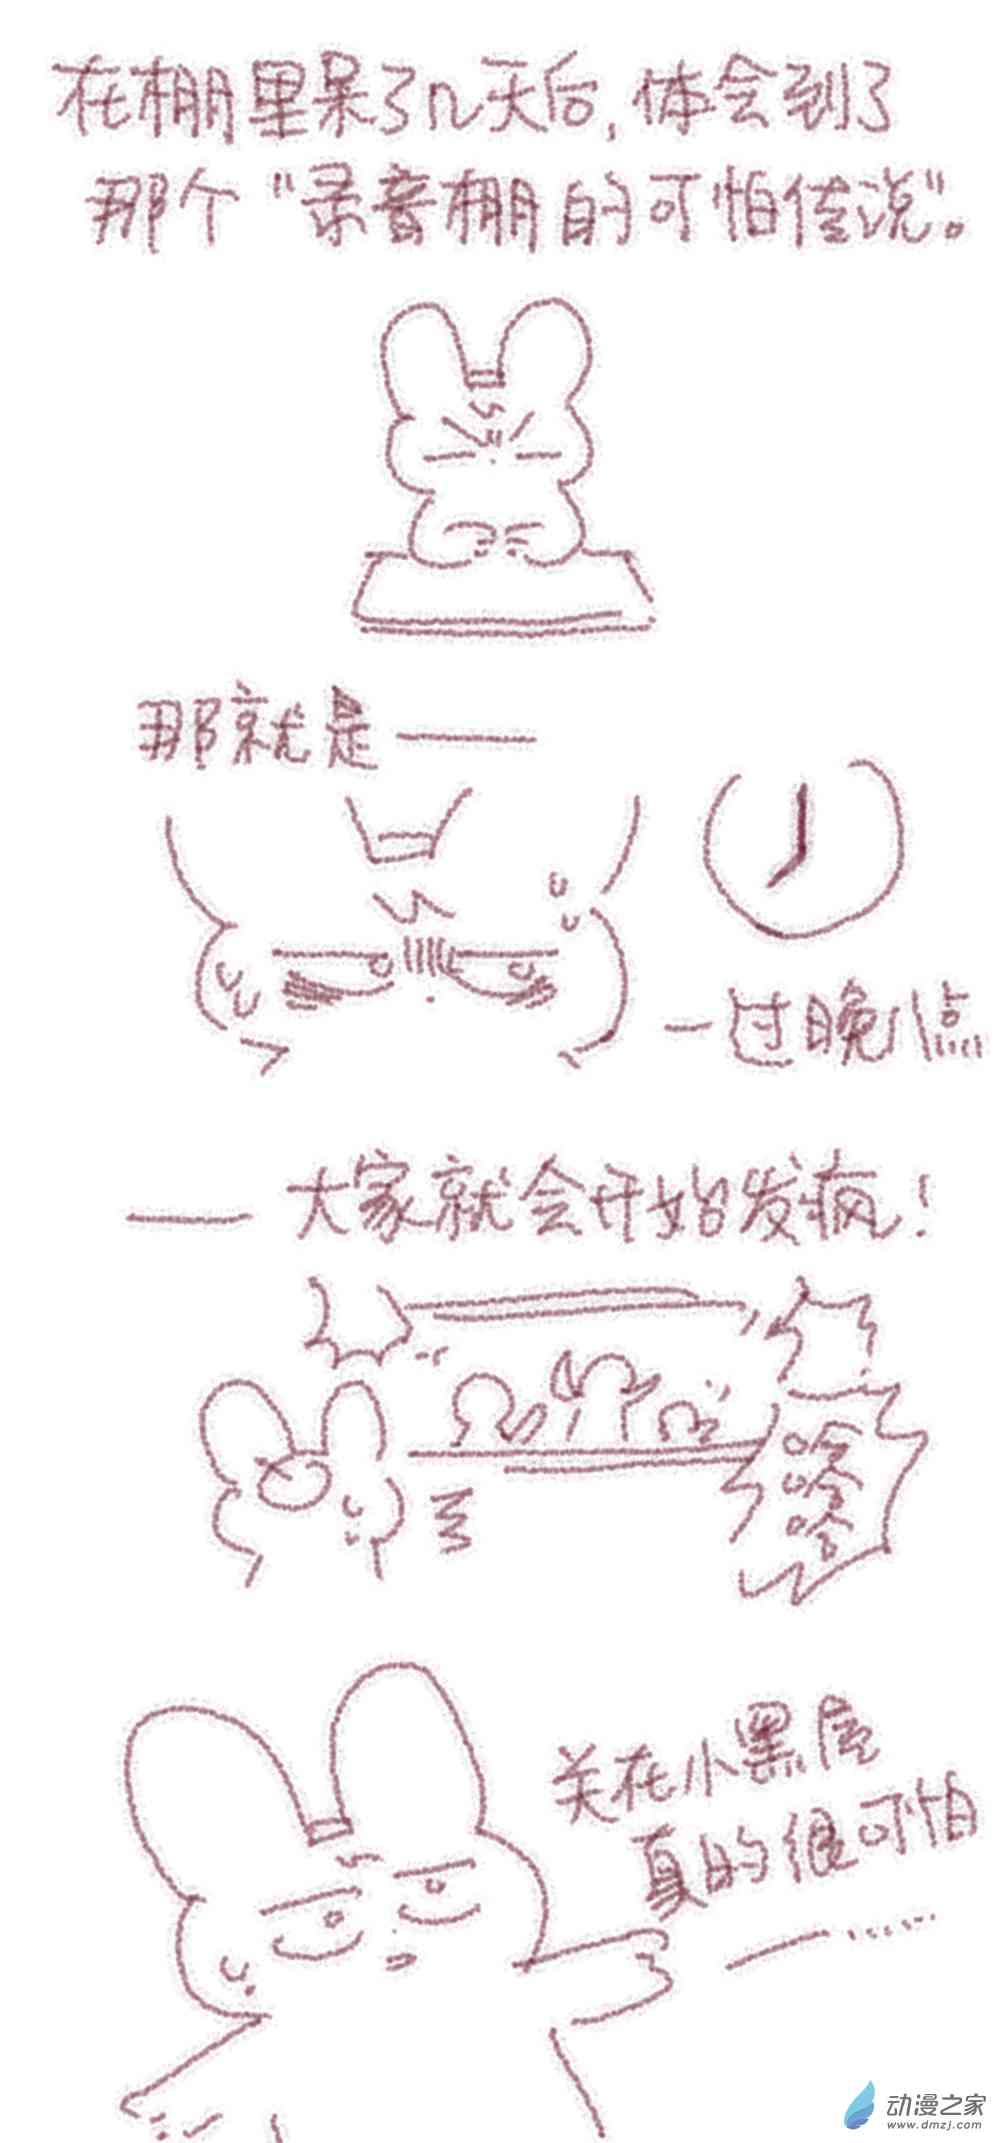 在棚里呆了几天后,体会到了
那个"录音棚的可怕传说"。
那就是——
一过晚八点
——大家就会开始发疯!
哈
哈
哈
关在小黑屋
真的很可怕
——……
动漫之家
www.dmzj.com